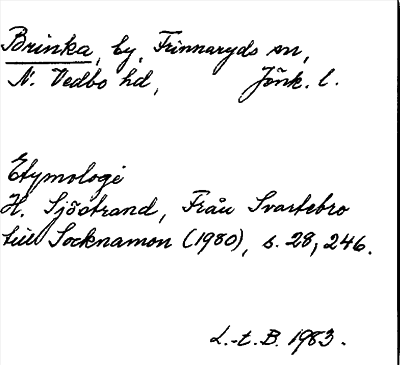 Brinka, by, Frinnaryds sn,
N. Vedbo hd, Jönk. l.
Etymologi
H. Sjöstrand, Från Svartebro
till Socknamon (1980), s. 28, 246.
L.-t. B. 1983.